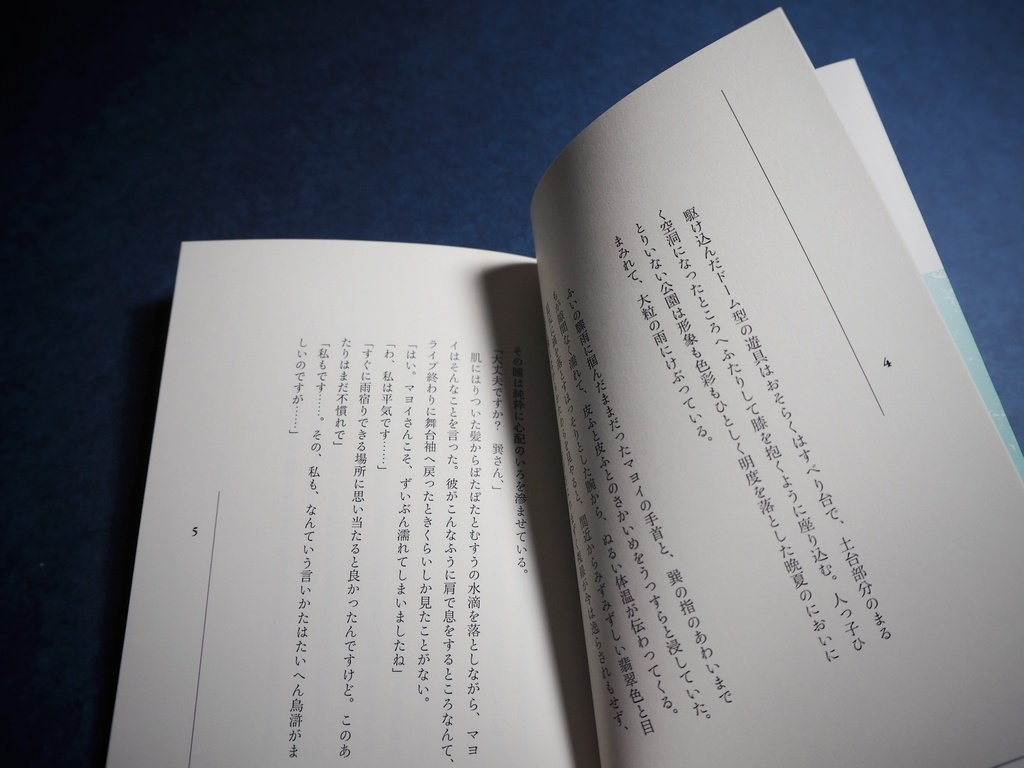 4
駆け込んだドーム型の遊具はおそらくはすべり台で、土台部分のまる
く空洞になったところへふたりして膝を抱くように座り込む。人っ子ひ
とりいない公園は形象も色彩もひとしく明度を落とした晩夏のにおいに
まみれて、大粒の雨にけぶっている。
ふいの驟雨に掴んだままだったマヨイの手首と、巽の指のあわいまで
もが隙間なく濡れて、皮ふと皮ふとのさかいめをうっすらと浸していた。
ほっそりとした腕から、ぬるい体温が伝わってくる。
間近からみずみずしい翡翠色と目
は逸らされもせず、
その瞳は純粋に心配のいろを滲ませている。
「大丈夫ですか？　巽さん、」
肌にはりついた髪からぱたぱたとむすうの水滴を落としながら、マヨ
イはそんなことを言った。彼がこんなふうに肩で息をするところなんて、
ライブ終わりに舞台袖へ戻ったときくらいしか見たことがない。
「はい。マヨイさんこそ、ずいぶん濡れてしまいましたね」
「わ、私は平気です……」
「すぐに雨宿りできる場所に思い当たると良かったんですけど。このあ
たりはまだ不慣れで」
「私もです……。その、私も、なんていう言いかたはたいへん烏滸がま
しいのですが……」
5